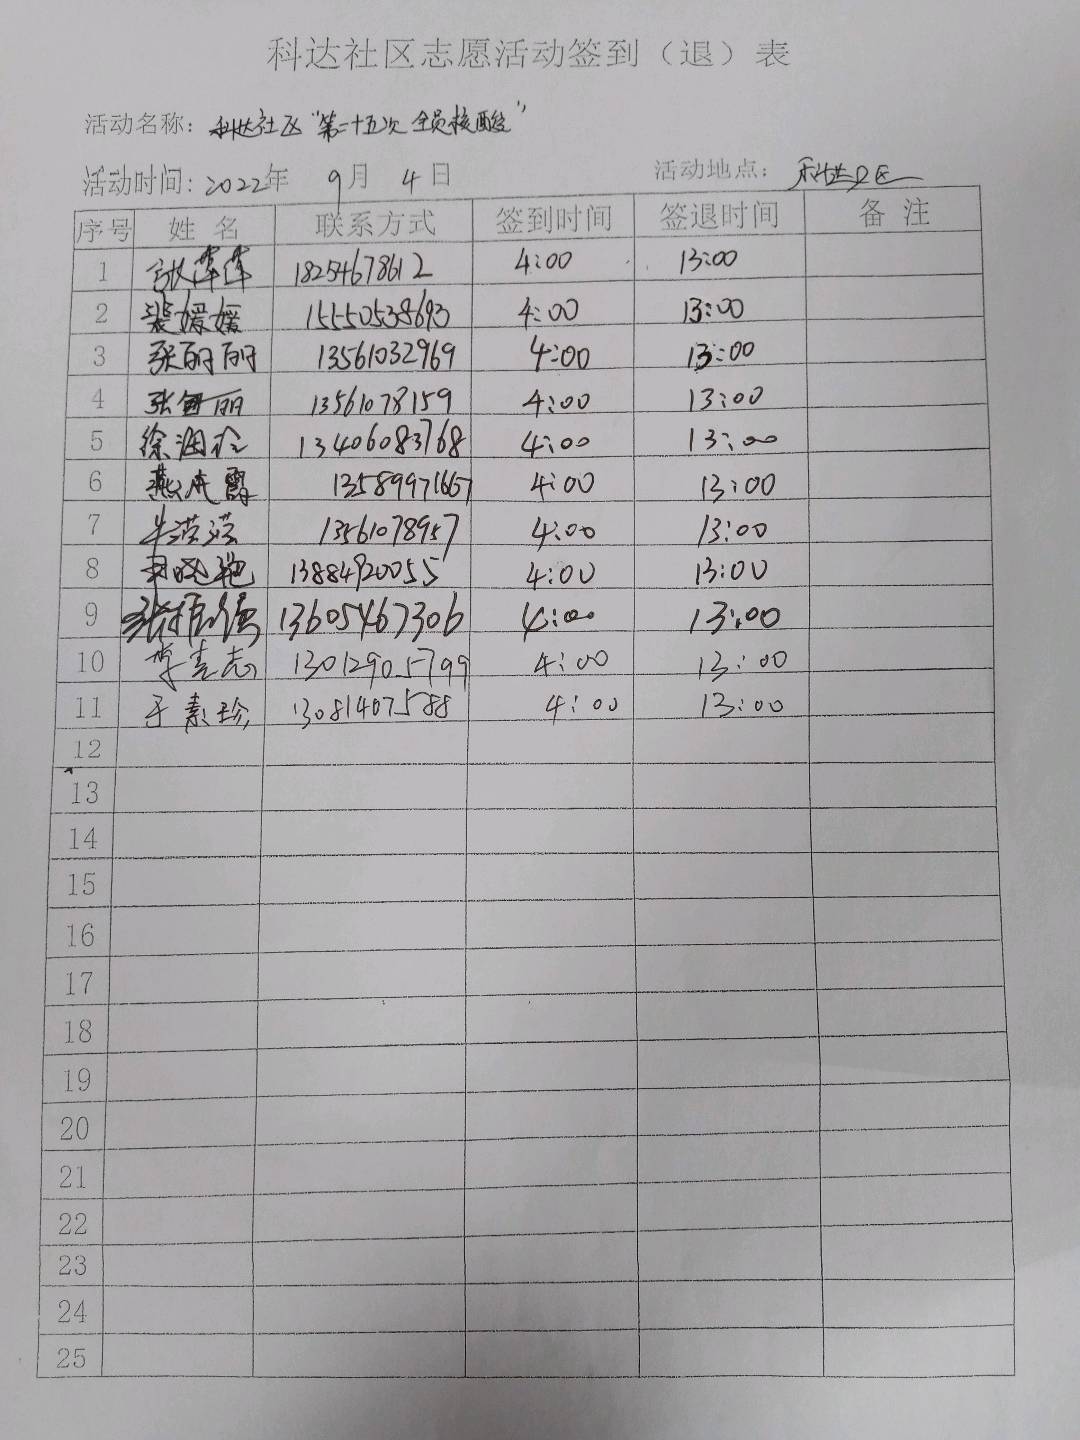 科达社区志愿活动签到（退）表
活动名称：科达社区“第二十五次全员核酸”
活动时间：2022年 9月 4日 活动地点：科达社区
序号 姓名 联系方式 签到时间 签退时间 备注
1 18254678612 4:00 13:00
2 裴媛媛 15550538693 4:00 13:00
3 张丽丽 13561032969 4:00 13:00
4 张 丽 13561078159 4:00 13:00
5 徐 13406083768 4:00 13:00
6 燕 霞 13589971667 4:00 13:00
7 牛滢滢 13561078957 4:00 13:00
8 13884920055 4:00 13:00
9 张振强 13605467306 4:00 13:00
10 李 志 13012905799 4:00 13:00
11 于素珍 13081407588 4:00 13:00
12
13
14
15
16
17
18
19
20
21
22
23
24
25